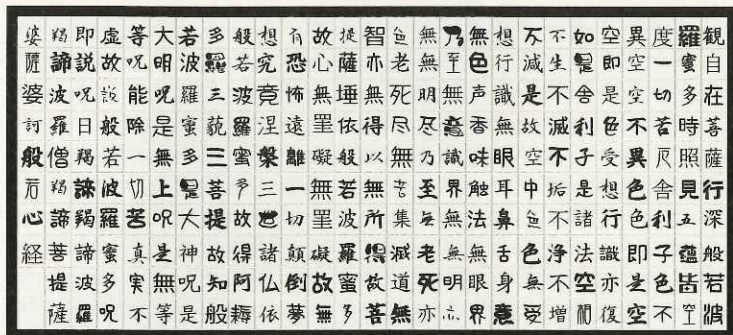 観自在菩薩行深般若波
羅蜜多時照見五蘊皆空
度一切苦厄舎利子色不
異空空不異色色即是空
空即是色受想行識亦復
如是舎利子是諸法空相
不生不滅不垢不浄不増
不減是故空中色色無受
想行識無眼耳鼻舌身意
無色声香味触法無眼界
乃至無意識界無無明亦
無無明尽乃至無老死亦
老死尽無苦集滅道無
智亦無得以無所得故菩
提薩埵依般若波羅蜜多
故心無罣礙無罣礙故無
有恐怖遠離一切顛倒夢
想究竟涅槃三世諸仏依
般若波羅蜜多故得阿耨
多羅三藐三菩提故知般
若波羅蜜多是大神呪是
大明呪是無上呪是無等
等呪能除一切苦真実不
虚故説般若波羅蜜多呪
即説呪曰羯諦羯諦波羅
羯諦波羅僧羯諦菩提薩
婆薩婆訶般若心経